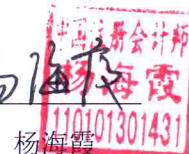 中国注册会计师
杨海霞
110101301431
杨海霞